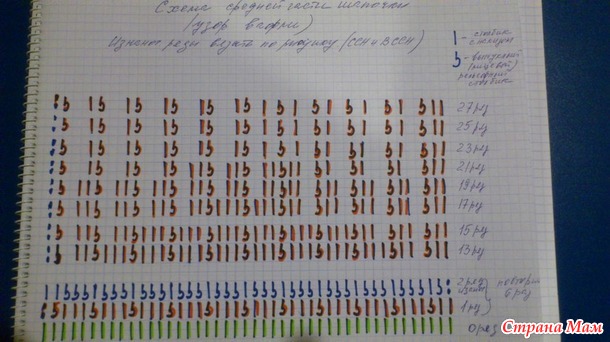 Схема средней части шапочки
(узор вверху)
Изнаные ряды вязать по рисунку (ССН и ВССН)
- столбик
с накидом
- выпуклый
(лицевой)
рельефный
столбик
27 ряд
25 ряд
23 ряд
21 ряд
19 ряд
17 ряд
15 ряд
13 ряд
2 ряд
1 ряд
повтор
6 раз
0 ряд
Страна Мам